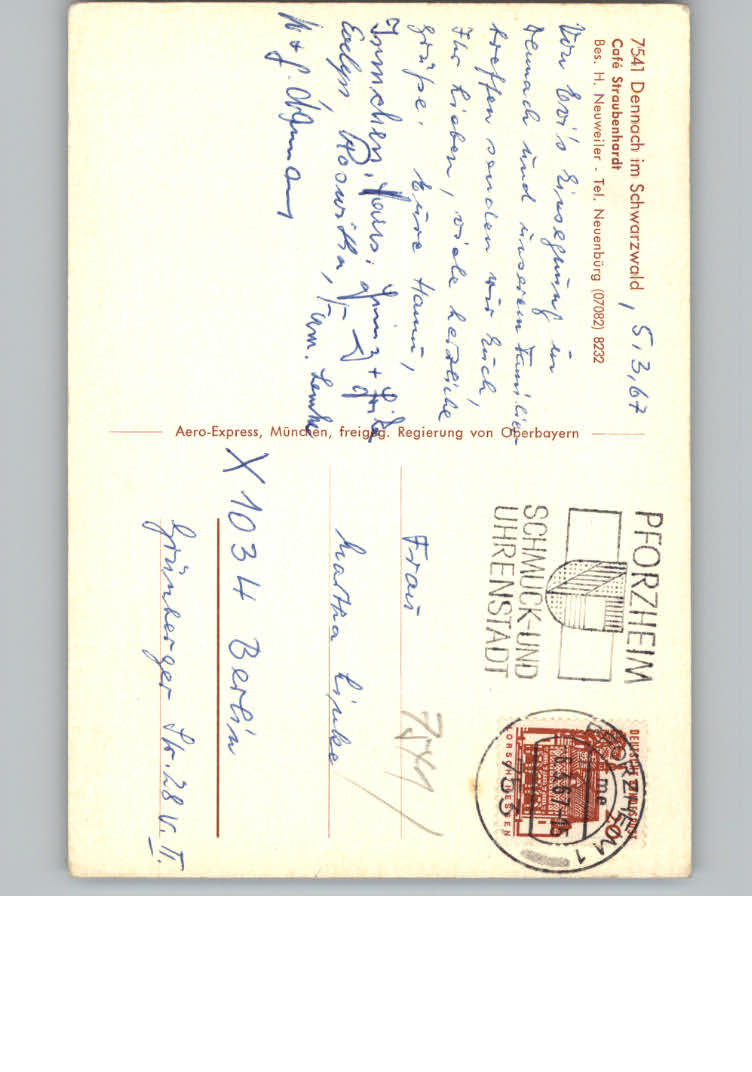 7541 Dennach im Schwarzwald, 5.3.67
Café Straubenhardt
Bes. H. Neuweiler - Tel. Neuenbürg (07082) 8232
Von Evi's Einsegnung in
Dennach und unserem Familien-
treffen senden wir Euch,
Ihr Lieben, viele herzliche
Grüße. Eure Hanni,
Irmchen, Hans,
Evelyn Roswitha, Fam. Lemke
Aero-Express, München, freigeg. Regierung von Oberbayern
PFORZHEIM
SCHMUCK-UND
UHRENSTADT
PFORZHEIM 1
753
DEUTSCHE BUNDESPOST
LORSCH/HESSEN
Frau
Martha Linke
X 1034 Berlin
Grünberger Str. 28 v. II.
7541